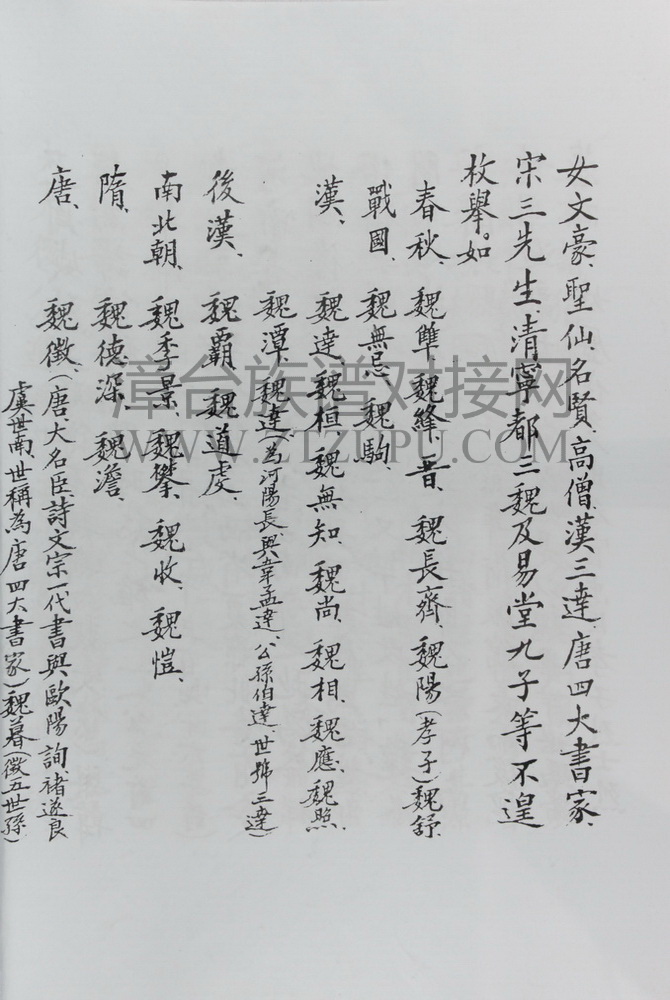 女文豪、聖仙、名賢、高僧、漢三達、唐四大書家、
宋三先生、清寧都三魏及易堂九子等不遑
枚舉。如
春秋、魏犨、魏絳、晋、魏長齊、魏陽(孝子)魏舒
戰國、魏無忌、魏駒
漢、魏達、魏桓、魏無知、魏尚、魏相、魏應、魏照、
魏潭、魏達(為河陽長、與韋孟達、公孫伯達、世號三達)
後漢、魏霸、魏道虔、
南北朝、魏季景、魏攀、魏收、魏愷、
隋、魏德深、魏澹、
唐、魏徵、(唐大名臣、詩文宗一代書與歐陽詢褚遂良
虞世南、世稱為唐四大書家)魏暮(徵五世孫)
漳台族谱对接网
WWW.ZTZUPU.COM